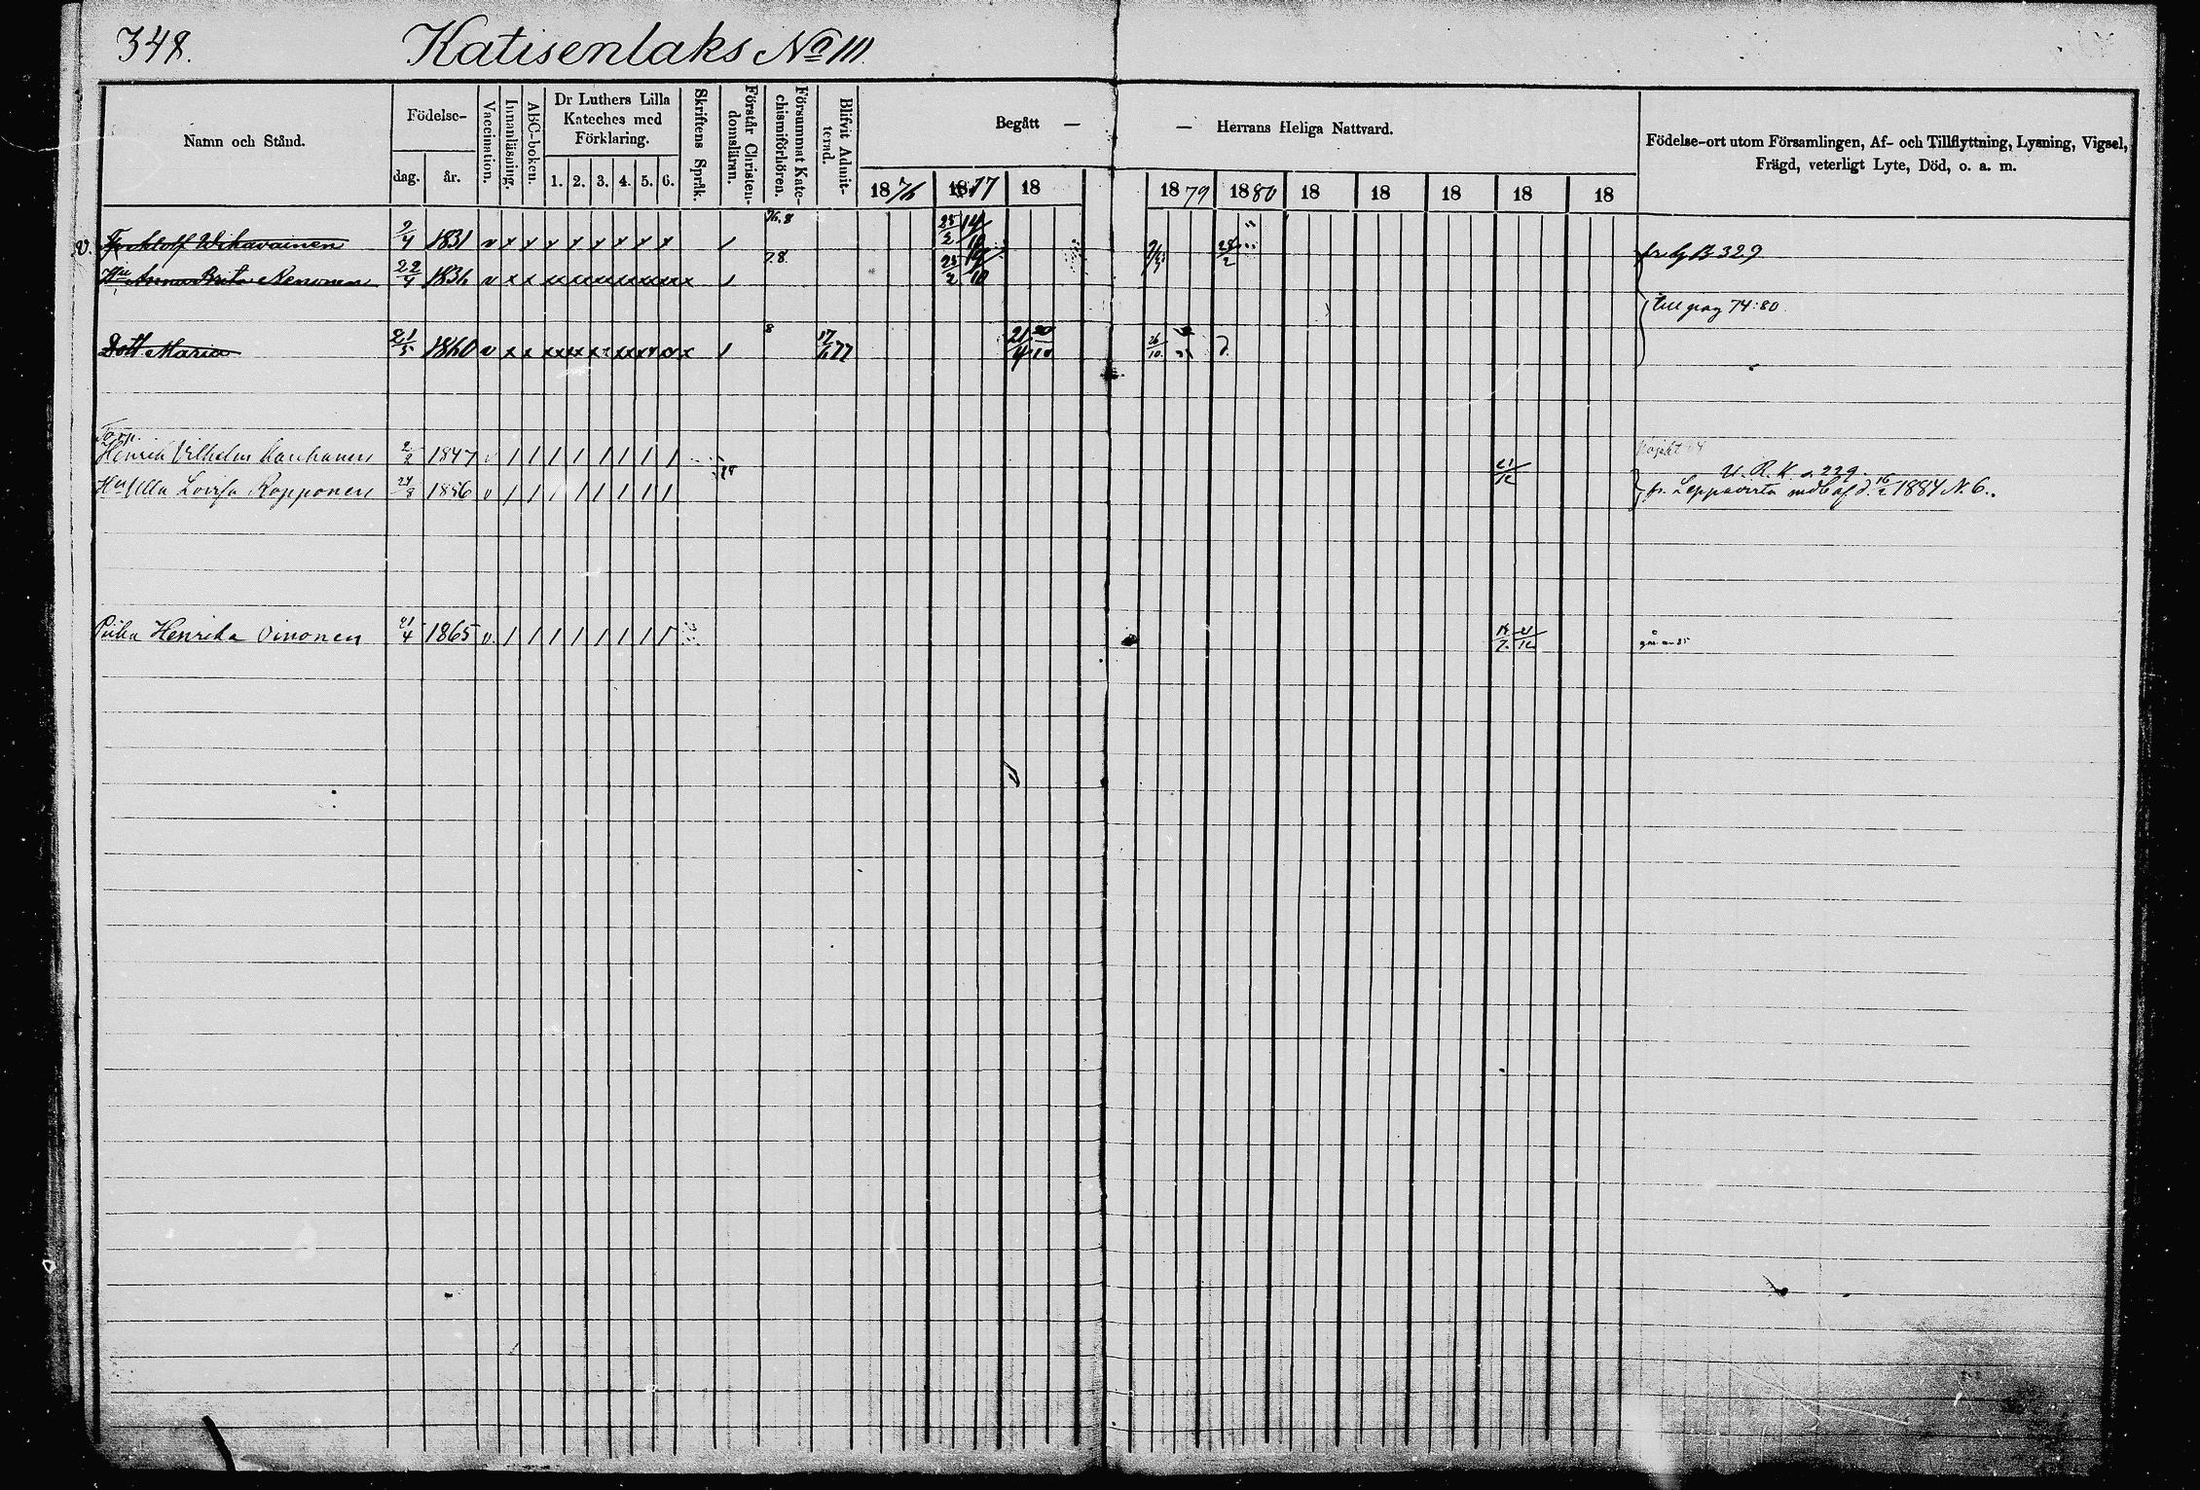 348. Katisenlaks No 111.
Namn och Stånd.
Födelse-
dag. år.
Vaccination.
Innanläsning.
ABC-boken.
Dr Luthers Lilla
Kateches med
Förklaring.
1. 2. 3. 4. 5. 6.
Skriftens Språk.
Förstår Christen-
domsläran.
Försummat Kate-
chismiförhören.
Blifvit Admit-
terad.
Begått — — Herrans Heliga Nattvard.
1876 1877 18 1879 1880 18 18 18 18 18
Födelse-ort utom Församlingen, Af- och Tillflyttning, Lysning, Vigsel,
Frägd, veterligt Lyte, Död, o. a. m.
Wihavainen 2/4 1831 v x x x x x x x x 76.8 25/2 28/2 329
Hu Anna Brita Nenonen 22/4 v x x 78 25/2
till pag 74:80
Dott Maria 21/5 1860 v x x 8 17/6 77 21/4 26/10
Torp.
Henrik Vilhelm Kauhanen 2/2 1847 v / / / / / / / / 21/12
U. R. K. s. 229.
Hu Ulla Lovisa Kopponen 24/8 1856 v / / / / / / / / fr. Leppävirta mdb af d. 16/2 1884 N. 6.
Piika Henrika Oinonen 21/4 1865 v. / / / / / / / / 21/12